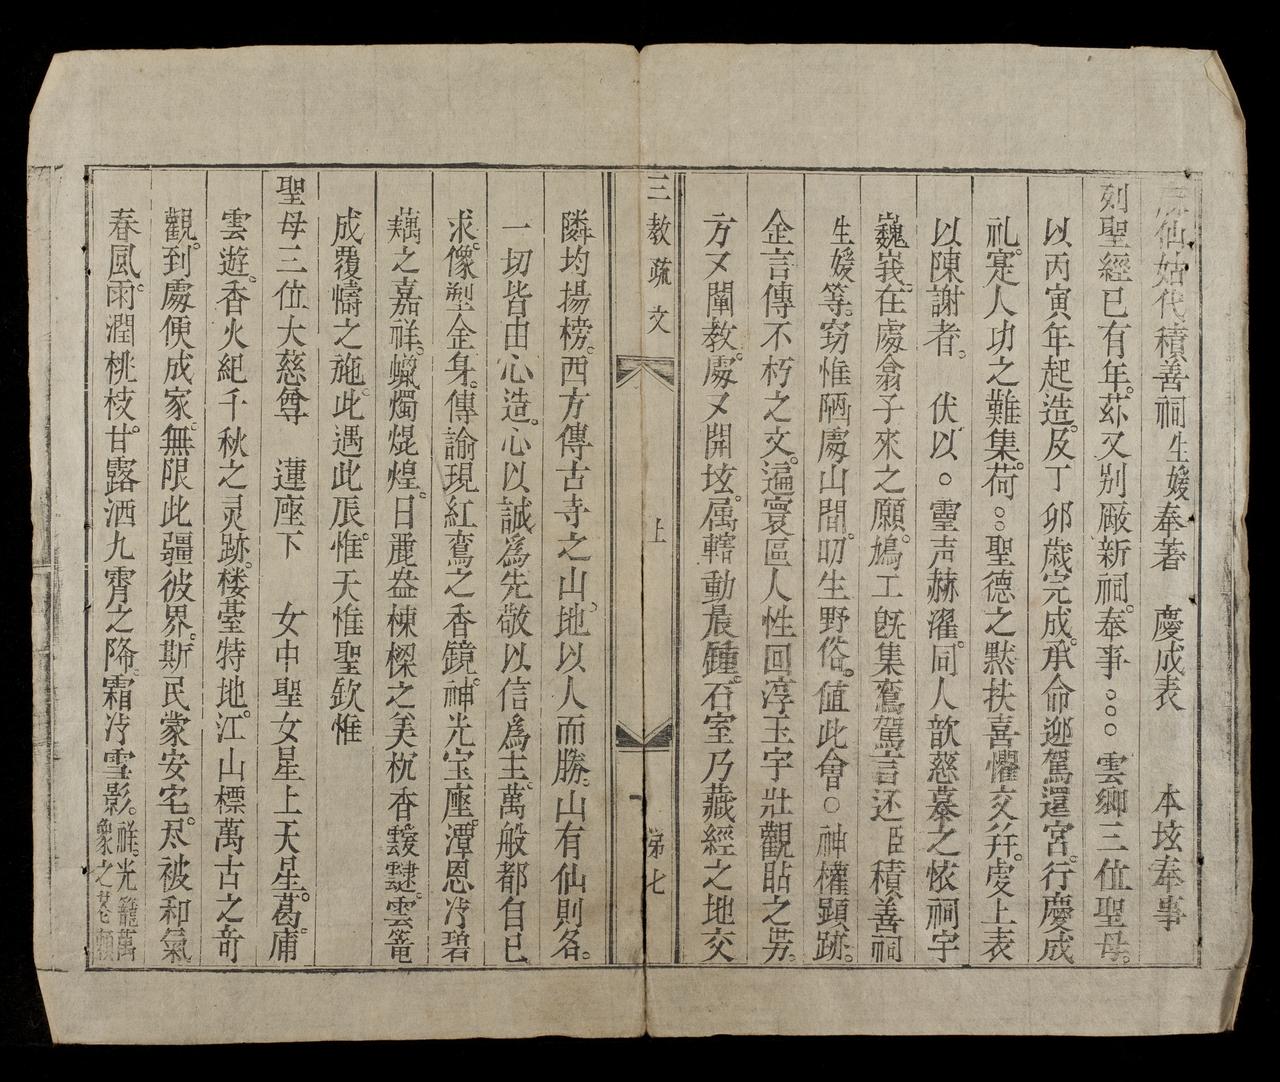 仙姑代積善祠生媛奉著　慶成表　本坛奉事
列聖經已有年。苏又别厰新祠。奉事○○○雲鄉三位聖母。
以丙寅年起造。及丁卯歲完成。承命迎駕還宮。行慶成
礼。寔人功之難集。荷○○聖德之黙扶喜懼交幷。虔上表
以陳謝者。　伏以○霊声赫濯。同人歆慈慕之依祠宇
巍峩。在處翕子來之願。鳩工旣集鸞駕言还臣積善祠
生媛等。窃惟陋處山間。叨生野俗。値此會○神權顕跡。
企言傳不朽之文。遍寰區人性回淳玉宇壯觀貼之
方又闡教。處又開坛。属轄動晨鍾。石室乃藏經之地交
三教疏文　上　第七
隣均揚榜。西方傳古寺之山。地以人而勝。山有仙則名。
一切皆由心造。心以誠為先敬以信為主。萬般都自己
求。像塑企身。傳諭現紅鸞之香鏡。神光宝座。潭恩冷碧
藕之嘉祥。蠟燭焜煌。日麗盎棟樑之美枕香靉靆。雲篭
成覆幬之施。此遇此辰。惟天惟聖欽惟
聖母三位大慈尊　蓮座下　女中聖女星上天星。葛。庯
雲遊。香火紀千秋之灵跡。楼臺特地。江山標萬古之竒
觀。到處便成家。無限此疆彼界。斯民蒙安宅。尽被和氣
春風。雨潤桃枝。甘露洒九霄之降。霜冷雪影。祥光籠萬象之